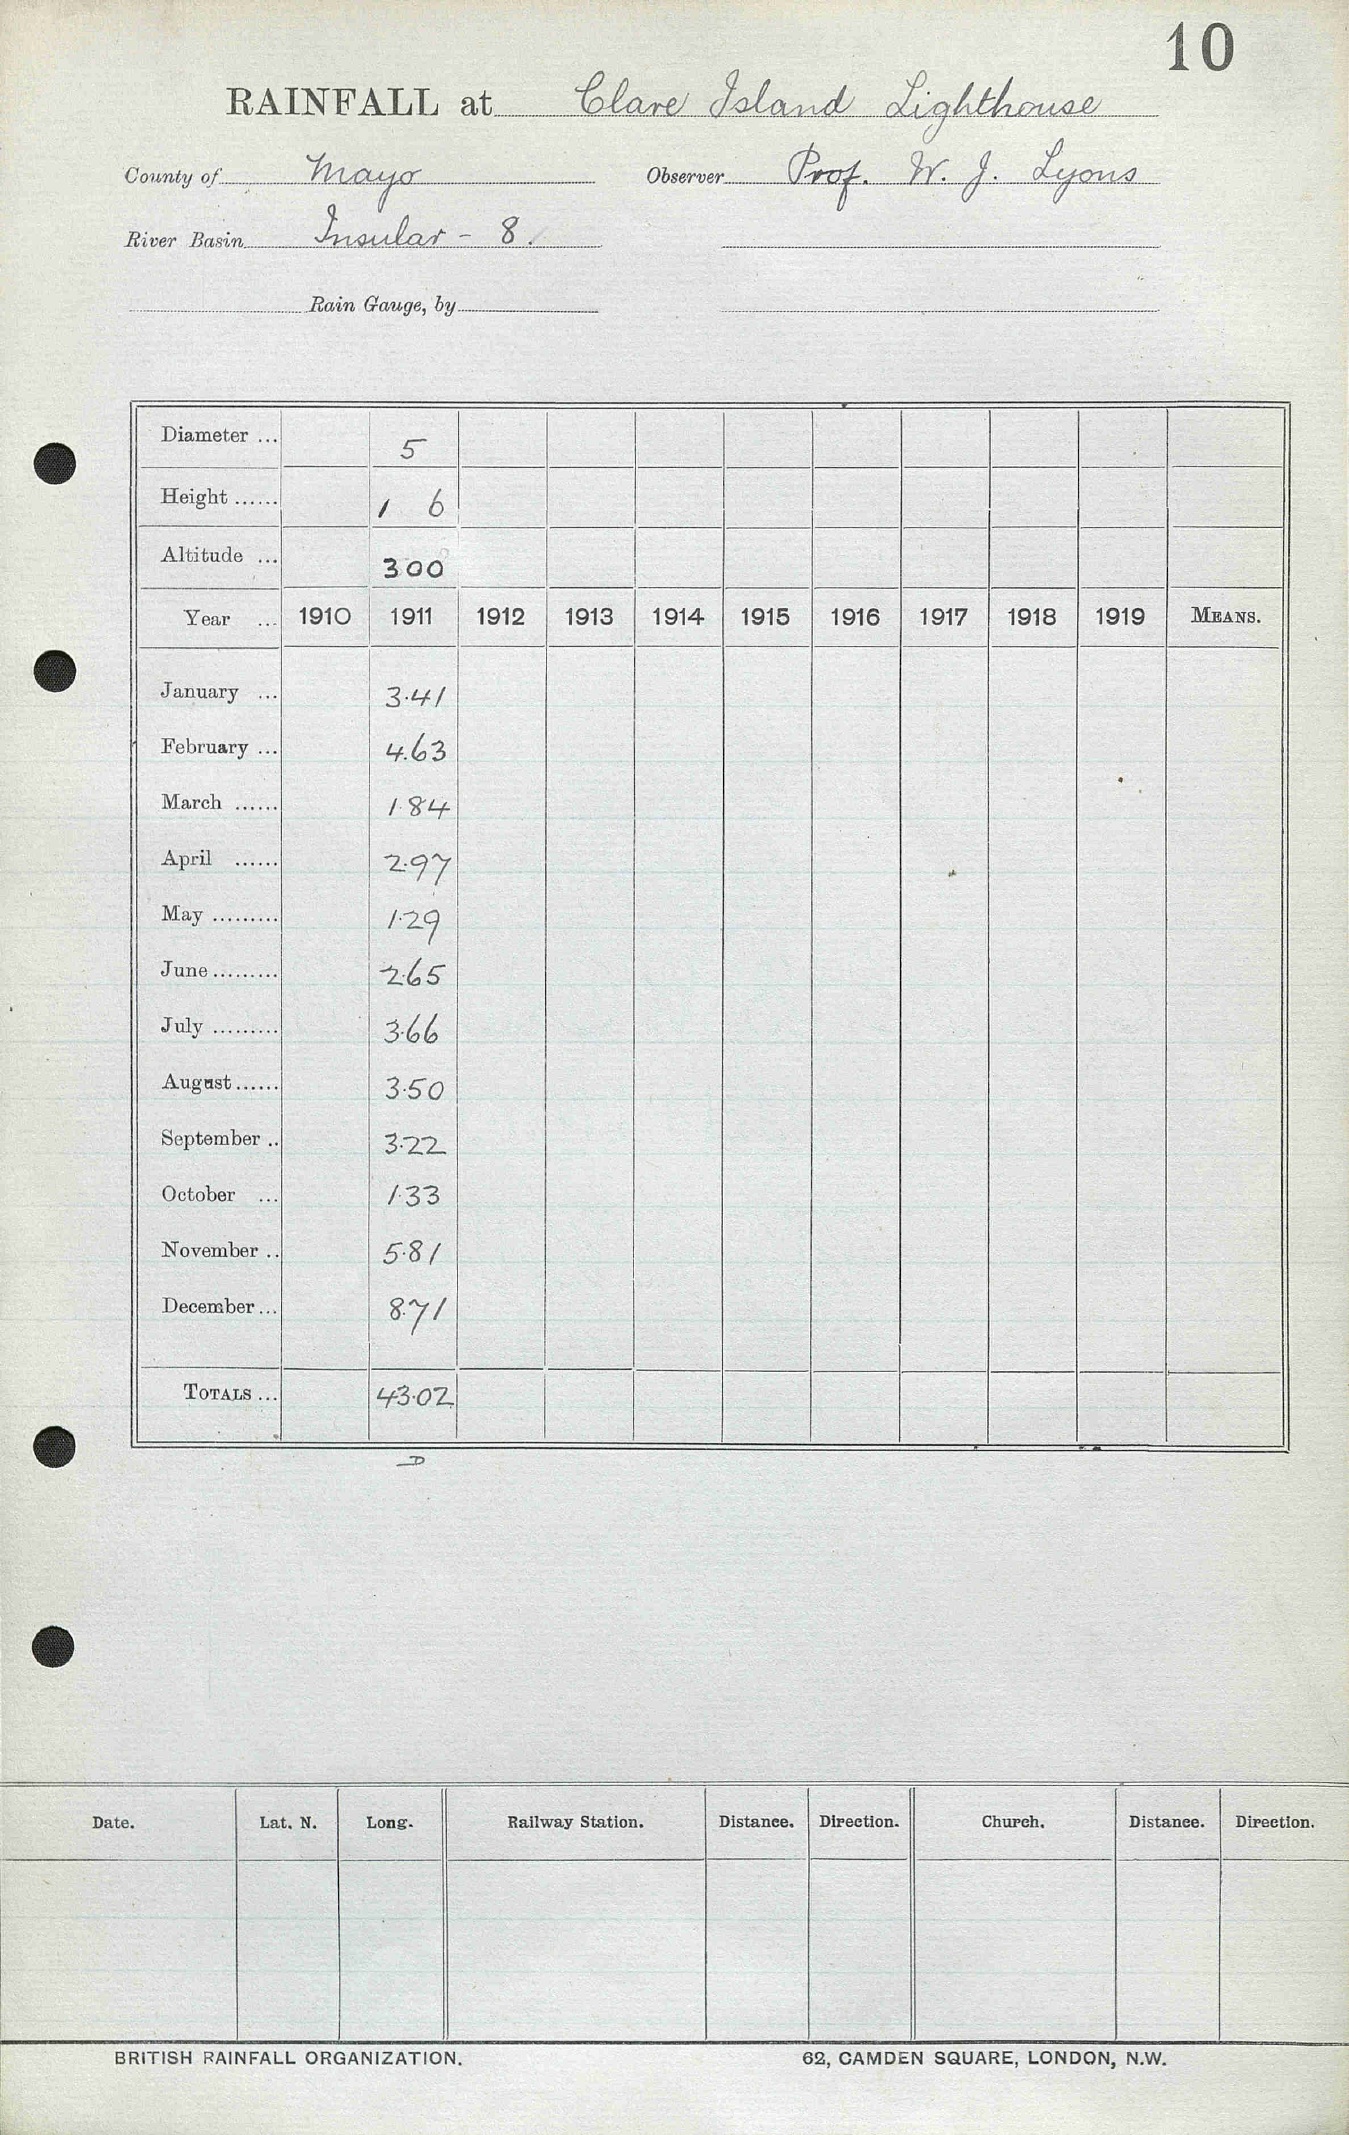 10
RAINFALL at Clare Island Lighthouse
County of Mayo Observer Prof. W. J. Lyons
River Basin Insular - 8.
Rain Gauge, by
Diameter ... 5
Height ...... 1 6
Altitude ... 300
Year ... 1910 1911 1912 1913 1914 1915 1916 1917 1918 1919 MEANS.
January ... 3.41
February ... 4.63
March ...... 1.84
April ...... 2.97
May ......... 1.29
June ......... 2.65
July ......... 3.66
August ...... 3.50
September .. 3.22
October ... 1.33
November .. 5.81
December ... 8.71
TOTALS ... 43.02
D
Date. Lat. N. Long. Railway Station. Distance. Direction. Church. Distance. Direction.
BRITISH RAINFALL ORGANIZATION. 62, CAMDEN SQUARE, LONDON, N.W.